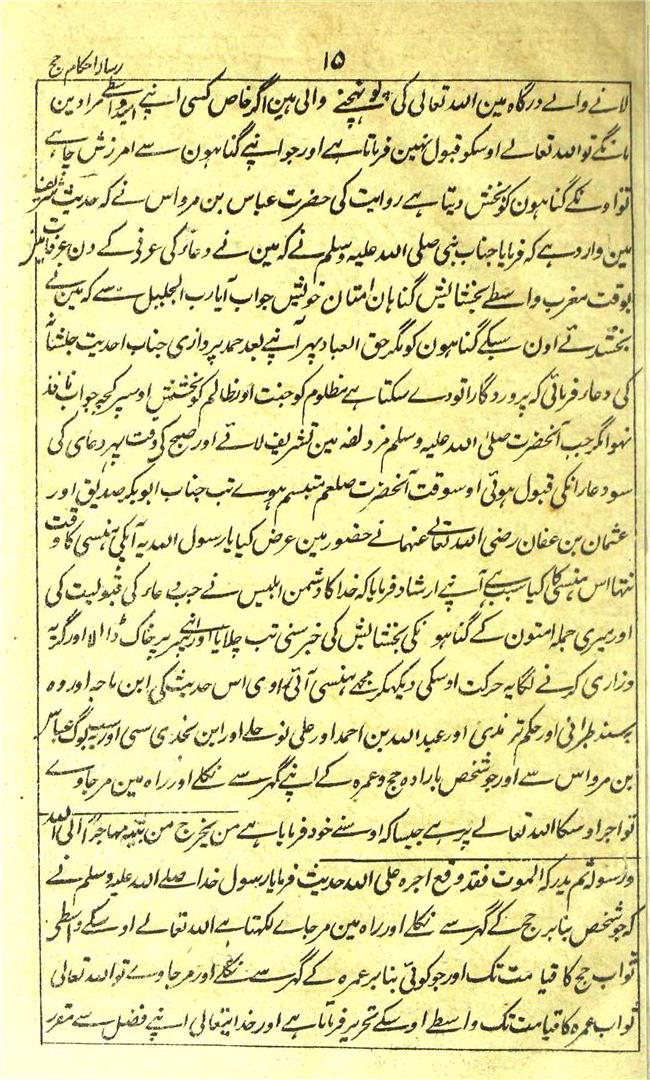 ۱۵
رسالہ احکام حج
لانے والے درگاہ مین اللہ تعالی کی پہونچنے والی ہین اگر خاص کسی اپنے واسطے مرادین
مانگے تو اللہ تعالے اوسکو قبول نہین فرماتا ہے اور جو اپنے گناہون سے امرزش چاہے
تو اونکے گناہون کو بخش دیتا ہے روایت کی حضرت عباس بن مرداس نے کہ حدیث شریف
مین وارد ہے کہ فرمایا جناب نبی صلی اللہ علیہ وسلم نے کہ مین نے دعا کی عرفی کے دن عرفات مین
بوقت مغرب واسطے بخشایش گناہان امتان خویش جواب آیا رب الجلیل سے کہ مین نے
بخشدئے اون سبکے گناہون کو مگر حق العباد پہر آپنے بعد حمد پروازی جناب احدیت جلشانہ
کی دعا فرمائی کہ پروردگارا تو دے سکتا ہے مظلوم کو جنت اور ظالم کو بخشش اوسپر کچہ جواب نافذ
نہوا مگر جب آنحضرت صلی اللہ علیہ وسلم مزدلفہ مین تشریف لائے اور صبح کی وقت پہر دعا کی
سو دعا انکی قبول ہوئی اوسوقت آنحضرت صلعم متبسم ہوے تب جناب ابوبکر صدیق اور
عثمان بن عفان رضی اللہ تعالے عنہما نے حضور مین عرض کیا یا رسول اللہ یہ آپکی ہنسی کا وقت
نتہا اس ہنسی کا کیا سبب ہے آپنے ارشاد فرمایا کہ خدا کا دشمن ابلیس نے جب دعا کی قبولیت کی
اور میری جملہ امتون کے گناہونکی بخشایش کی خبر سنی تب چلایا اور اپنے سر پر خاک ڈالا اور گریہ
وزاری کرنے لگا یہ حرکت اوسکی دیکہکر مجہے ہنسی آئی راوی اس حدیث کی ابن ماجہ اور وہ
بسند طبرانی اور حکیم ترمذی اور عبد اللہ بن احمد اور علی اور ابن عدی سی اور یہ لوگ عباس
بن مرداس سے اور جو شخص بارادہ حج و عمرہ کے اپنے گہر سے نکلے اور راہ مین مر جاوے
تو اجر اوسکا اللہ تعالے پر ہے جیسا کہ اوسنے خود فرمایا ہے من یخرج من بیتہ مہاجرا الی اللہ
ورسولہ ثم یدرکہ الموت فقد وقع اجرہ علی اللہ حدیث فرمایا رسول خدا صلے اللہ علیہ وسلم نے
کہ جو شخص بنابر حج کے گہر سے نکلے اور راہ مین مر جاے لکہتا ہے اللہ تعالے اوسکے واسطی
ثواب حج کا قیامت تک اور جو کوئی بنابر عمرہ کے گہر سے نکلے اور مر جاوے تو اللہ تعالی
ثواب عمرہ کا قیامت تک واسطے اوسکے تحریر فرماتا ہے اور خدایتعالی اپنے فضل سے مقرر